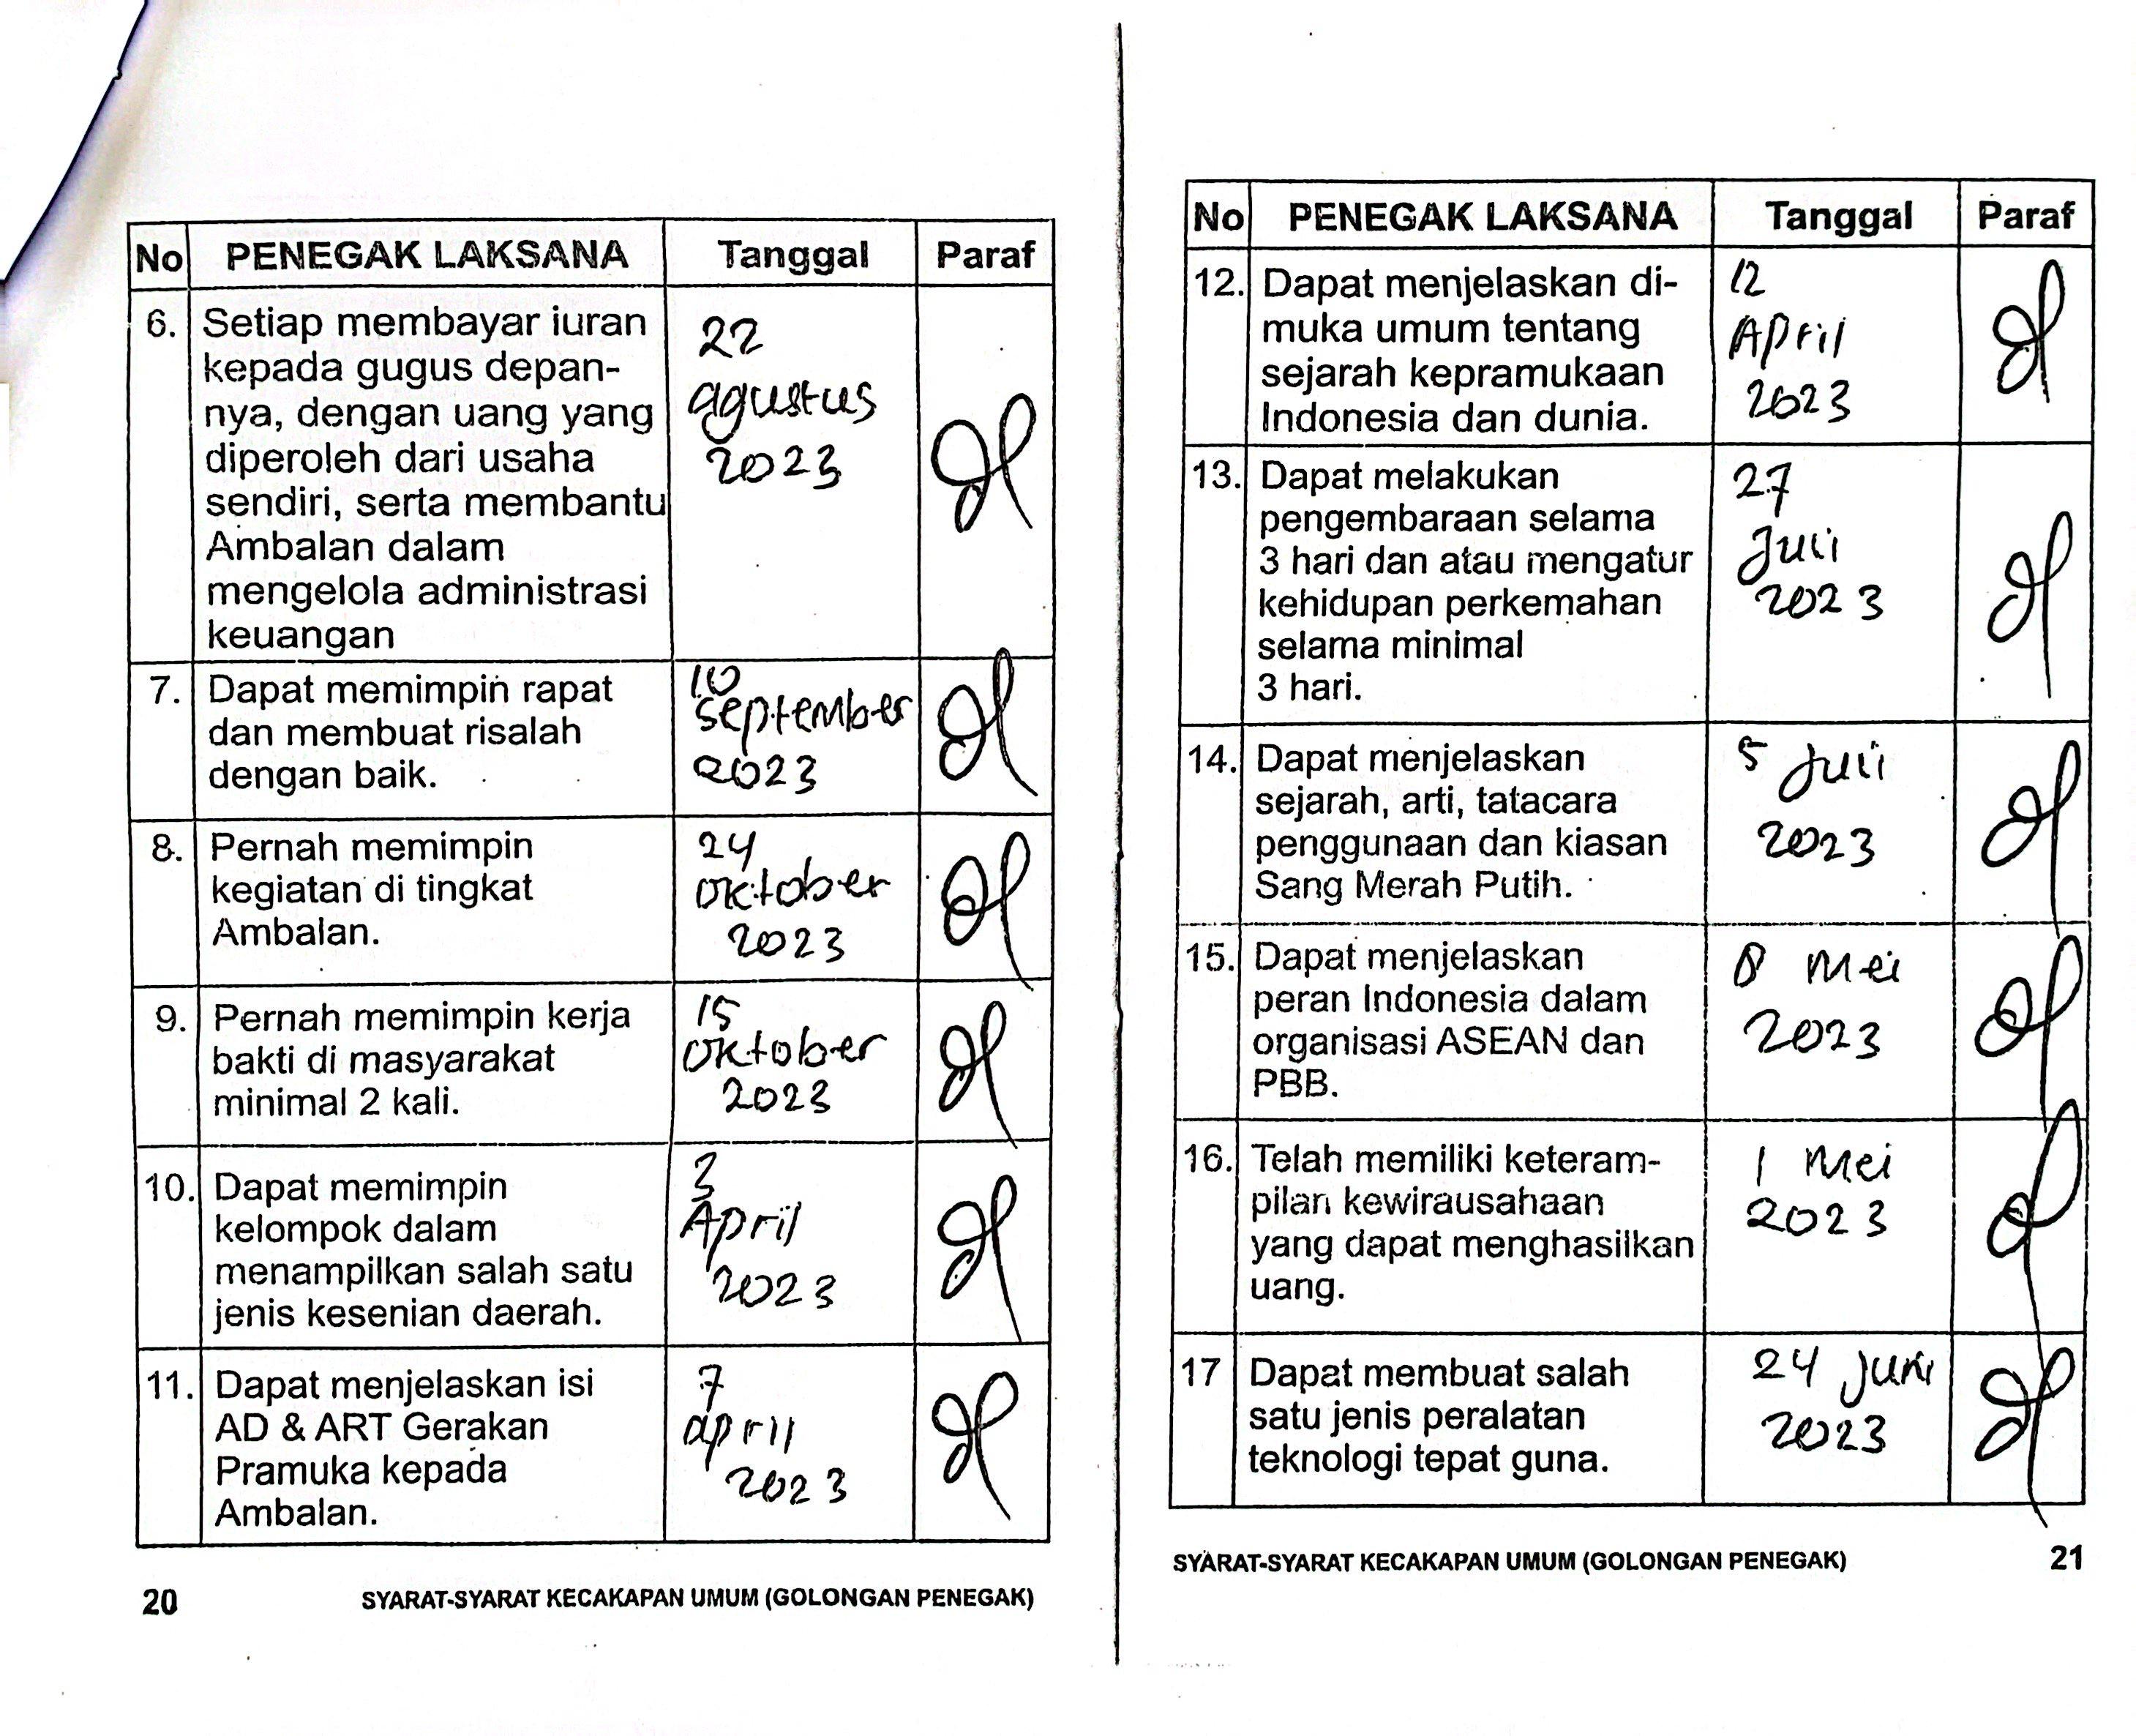 No PENEGAK LAKSANA Tanggal Paraf
6. Setiap membayar iuran
kepada gugus depan-
nya, dengan uang yang
diperoleh dari usaha
sendiri, serta membantu
Ambalan dalam
mengelola administrasi
keuangan
22
agustus
2023
7. Dapat memimpin rapat
dan membuat risalah
dengan baik.
10
september
2023
8. Pernah memimpin
kegiatan di tingkat
Ambalan.
24
oktober
2023
9. Pernah memimpin kerja
bakti di masyarakat
minimal 2 kali.
15
oktober
2023
10. Dapat memimpin
kelompok dalam
menampilkan salah satu
jenis kesenian daerah.
3
April
2023
11. Dapat menjelaskan isi
AD & ART Gerakan
Pramuka kepada
Ambalan.
7
april
2023
20 SYARAT-SYARAT KECAKAPAN UMUM (GOLONGAN PENEGAK)
No PENEGAK LAKSANA Tanggal Paraf
12. Dapat menjelaskan di-
muka umum tentang
sejarah kepramukaan
Indonesia dan dunia.
12
April
2023
13. Dapat melakukan
pengembaraan selama
3 hari dan atau mengatur
kehidupan perkemahan
selama minimal
3 hari.
27
Juli
2023
14. Dapat menjelaskan
sejarah, arti, tatacara
penggunaan dan kiasan
Sang Merah Putih.
5 Juli
2023
15. Dapat menjelaskan
peran Indonesia dalam
organisasi ASEAN dan
PBB.
8 Mei
2023
16. Telah memiliki keteram-
pilan kewirausahaan
yang dapat menghasilkan
uang.
1 Mei
2023
17 Dapat membuat salah
satu jenis peralatan
teknologi tepat guna.
24 juni
2023
SYARAT-SYARAT KECAKAPAN UMUM (GOLONGAN PENEGAK) 21